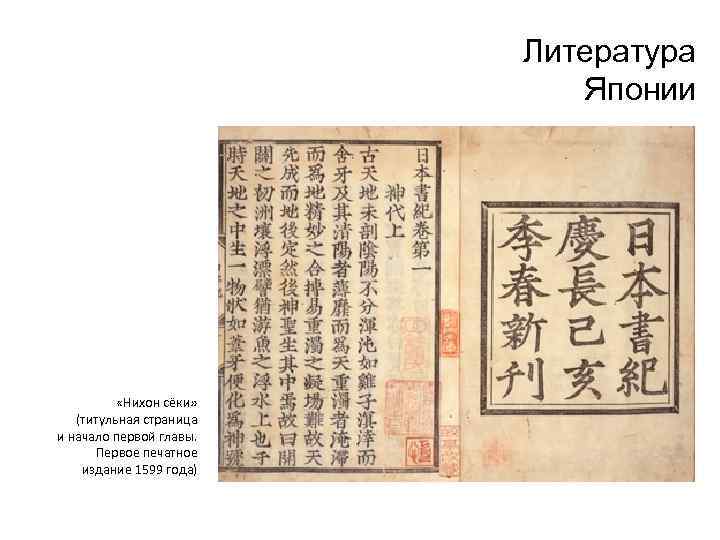 Литература
Японии
日本書紀
慶長己亥
季春新刊
日本書紀卷第一
神代上
古天地未剖陰陽不分渾沌如雞子溟涬而
含牙及其清陽者薄靡而爲天重濁者淹滯
而爲地精妙之合搏易重濁之凝場難故天
先成而地後定然後神聖生其中焉故曰開
闢之初洲壤浮漂譬猶游魚之浮水上也于
時天地之中生一物狀如葦牙便化爲神號
«Нихон сёки»
(титульная страница
и начало первой главы.
Первое печатное
издание 1599 года)